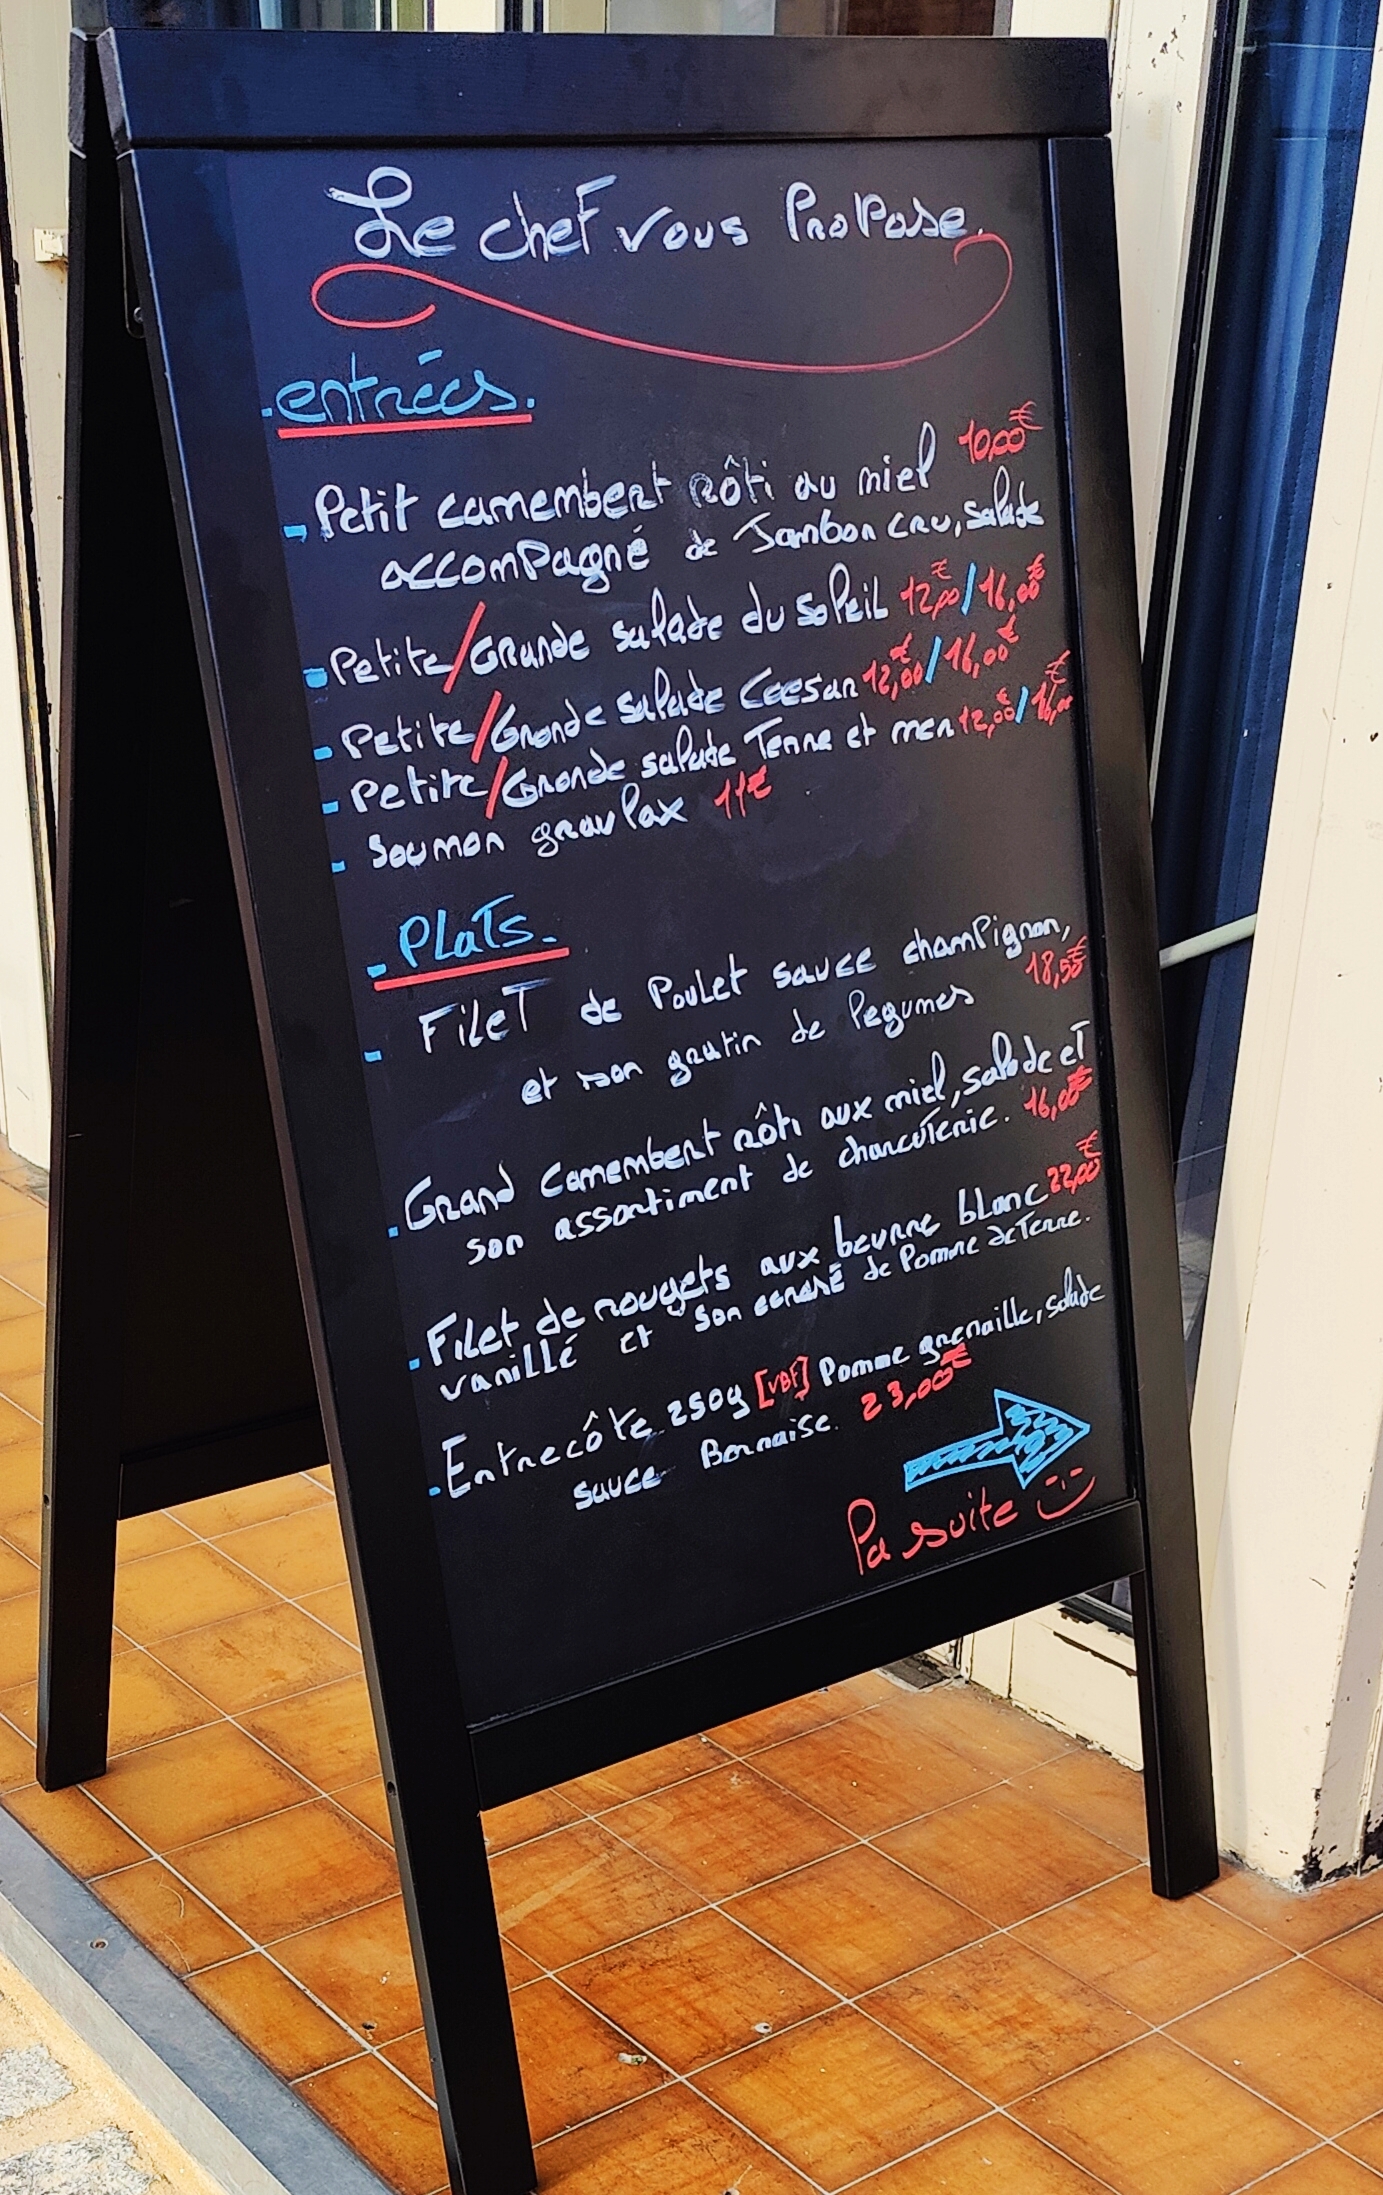 Le chef vous Propose.
entrées.
- Petit camembert rôti au miel 10,00€
accompagné de Jambon cru, salade
- Petite/Grande salade du soleil 12,00€/16,00€
- Petite/Grande salade Ceesar 12,00€/16,00€
- Petite/Grande salade Terre et mer 12,00€/16,00€
- Soumon gravlax 11€
- PLaTs.
- FileT de Poulet sauce champignon,
et son gratin de légumes 18,50€
. Grand Camembert rôti aux miel, salade eT
son assortiment de charcuterie. 16,00€
. Filet de rougets aux beurre blanc 22,00€
vanillé et son ecrasé de Pomme de Terre.
. Entrecôte 250g [VBF] Pomme grenaille, salade
sauce Bernaise. 23,00€
la suite